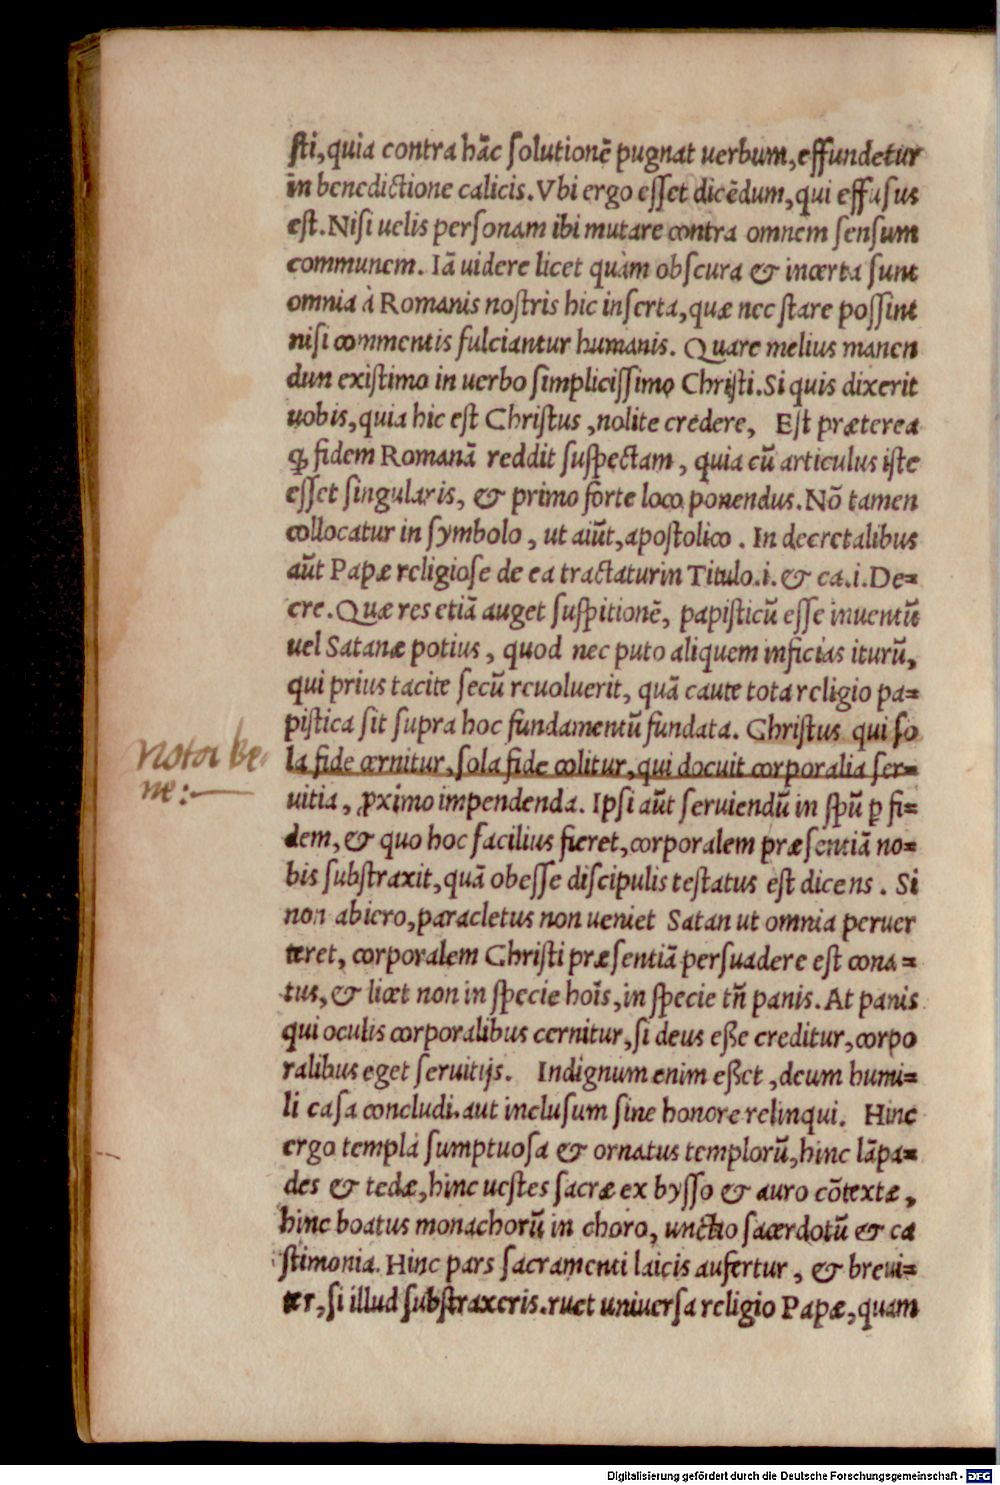 sti, quia contra hāc solutionē pugnat uerbum, effundetur
in benedictione calicis. Vbi ergo esset dicēdum, qui effusus
est. Nisi uelis personam ibi mutare contra omnem sensum
communem. Iā uidere licet quàm obscura & incerta sunt
omnia à Romanis nostris hic inserta, quæ nec stare possint
nisi commentis fulciantur humanis. Quare melius manen
dun existimo in uerbo simplicissimo Christi. Si quis dixerit
uobis, quia hic est Christus, nolite credere, Est præterea
ꝙ fidem Romanā reddit suspectam, quia cū articulus iste
esset singularis, & primo forte loco ponendus. Nō tamen
collocatur in symbolo, ut aiūt, apostolico. In decretalibus
aūt Papæ religiose de ea tractatur in Titulo.i. & ca.i. De=
cre. Quæ res etiā auget suspitionē, papisticū esse inuentū
uel Satanæ potius, quod nec puto aliquem inficias iturū,
qui prius tacite secū reuoluerit, quā caute tota religio pa=
pistica sit supra hoc fundamentū fundata. Christus qui so
Nota be=
ne:—
la fide cernitur, sola fide colitur, qui docuit corporalia ser=
uitia, ꝓximo impendenda. Ipsi aūt seruiendū in spū ꝑ fi=
dem, & quo hoc facilius fieret, corporalem præsentiā no=
bis substraxit, quā obesse discipulis testatus est dicens. Si
non abiero, paracletus non ueniet Satan ut omnia peruer
teret, corporalem Christi præsentiā persuadere est cona=
tus, & licet non in specie hoīs, in specie tñ panis. At panis
qui oculis corporalibus cernitur, si deus eße creditur, corpo
ralibus eget seruitijs. Indignum enim eßet, deum humi=
li casa concludi, aut inclusum sine honore relinqui. Hinc
ergo templa sumptuosa & ornatus templorū, hinc lāpa=
des & tedæ, hinc uestes sacræ ex bysso & auro cōtextæ,
hinc boatus monachorū in choro, unctio sacerdotū & ca
stimonia. Hinc pars sacramenti laicis aufertur, & breui=
ter, si illud substraxeris. ruet uniuersa religio Papæ, quam
Digitalisierung gefördert durch die Deutsche Forschungsgemeinschaft - DFG